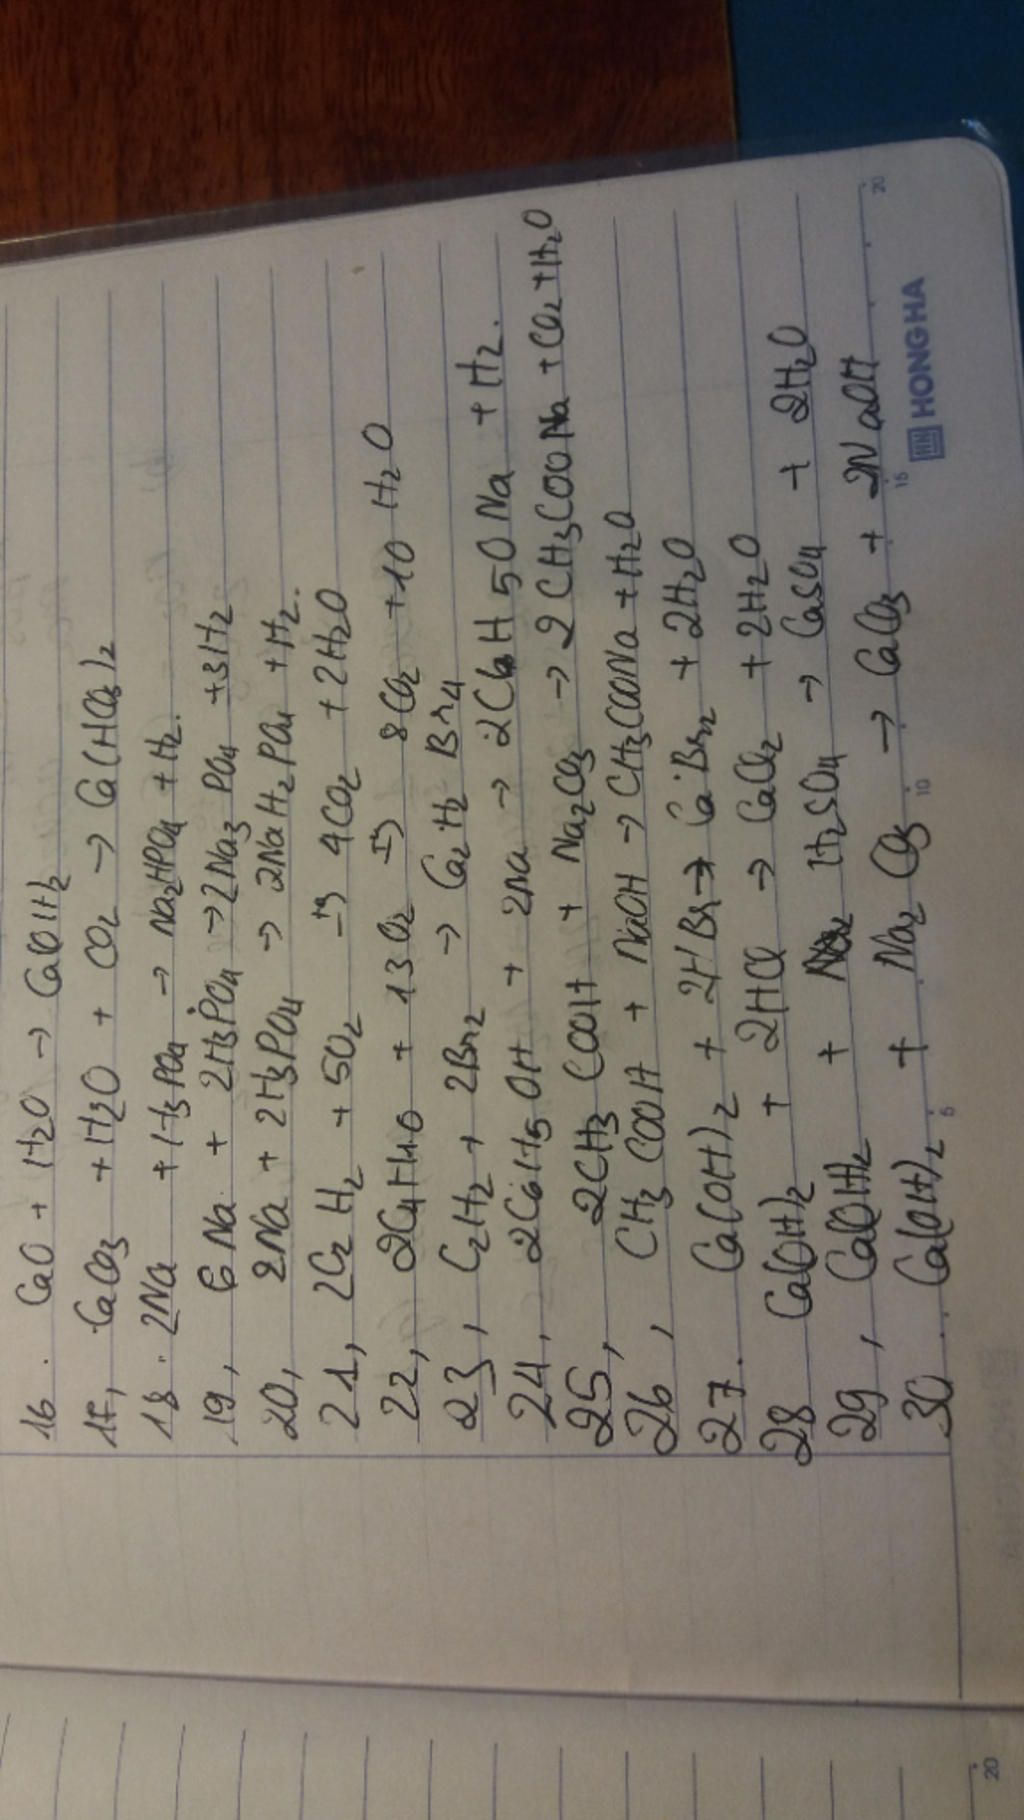 16. CaO + H2O → Ca(OH)2
17, CaCO3 + H2O + CO2 → Ca(HCO3)2
18. 2Na + H3PO4 → Na2HPO4 + H2.
19, 6Na + 2H3PO4 → 2Na3PO4 + 3H2
20, 2Na + 2H3PO4 → 2NaH2PO4 + H2.
21, 2C2H2 + 5O2 →t° 4CO2 + 2H2O
22, 2C4H10 + 13O2 →t° 8CO2 + 10H2O
23, C2H2 + 2Br2 → C2H2Br4
24, 2C6H5OH + 2Na → 2C6H5ONa + H2.
25, 2CH3COOH + Na2CO3 → 2CH3COONa + CO2 + H2O
26, CH3COOH + NaOH → CH3COONa + H2O
27. Ca(OH)2 + 2HBr → CaBr2 + 2H2O
28 Ca(OH)2 + 2HCl → CaCl2 + 2H2O
29, Ca(OH)2 + H2SO4 → CaSO4 + 2H2O
30. Ca(OH)2 + Na2CO3 → CaCO3 + 2NaOH
5 10 15 20
HONG HA
20